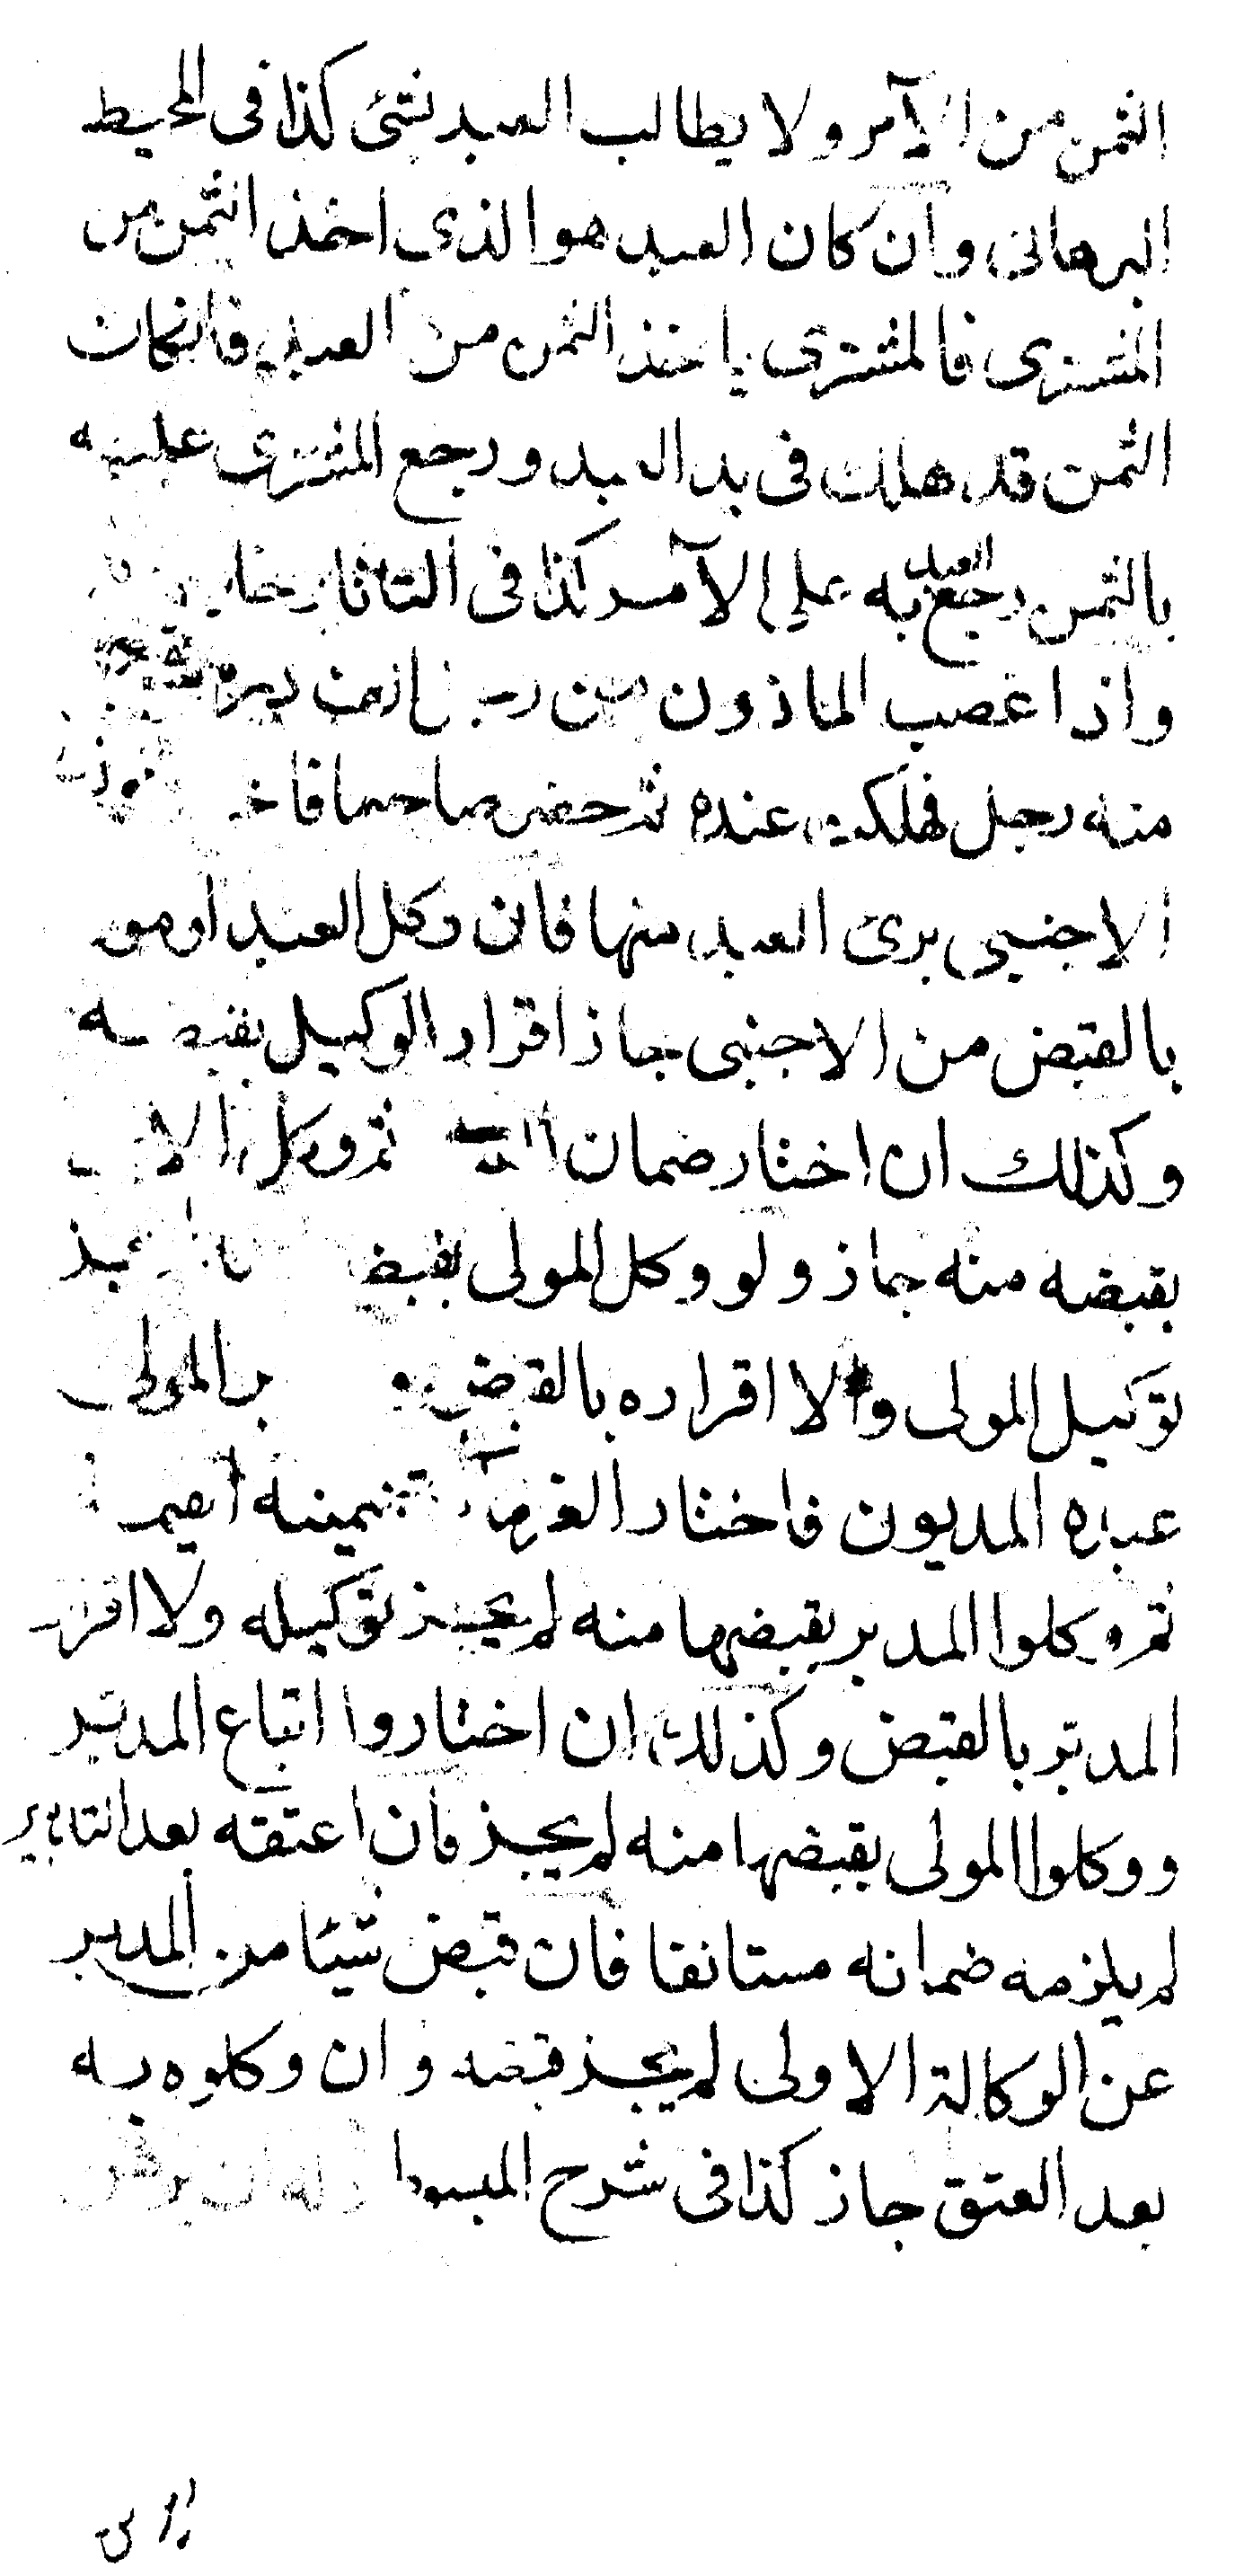 الثمن من الآمر ولا يطالب العبد بشئ كذا فى المحيط
البرهانى وان كان العبد هو الذى اخذ الثمن من
المشترى فالمشترى ياخذ الثمن من العبد فان كان
الثمن قد هلك فى يد العبد ورجع المشترى عليه
بالثمن رجع العبد به على الآمر كذا فى التاتارخا
واذا غصب الماذون من رجل الف درهم
منه رجل فهلكت عنده ثم حضر صاحبها فاخ
الاجنبى برئ العبد منها فان وكل العبد او مو
بالقبض من الاجنبى جاز اقرار الوكيل بقبضه
وكذلك ان اختار ضمان ثم وكل الا
بقبضه منه جاز ولو وكل المولى بقبض
توكيل المولى ولا اقراره بالقبض و المولى
عبده المديون فاختار الغرماء تضمينه القيم
ثم وكلوا المدبر بقبضها منه لم يجز توكيله ولا اقرار
المدبر بالقبض وكذلك ان اختاروا اتباع المدبر
ووكلوا المولى بقبضها منه لم يجز فان اعتقه بعد التدبير
لم يلزمه ضمانه مستانفا فان قبض شيئا من المدبر
عن الوكالة الاولى لم يجز قبضه وان وكلوه به
بعد العتق جاز كذا فى شرح المبسوط